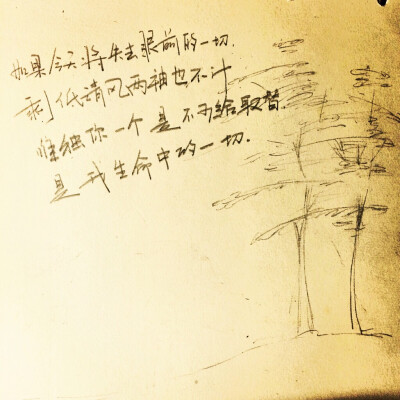 如果今天将失去眼前的一切.
剩低清风两袖也不计
唯独你一个是不可给取替.
是我生命中的一切.